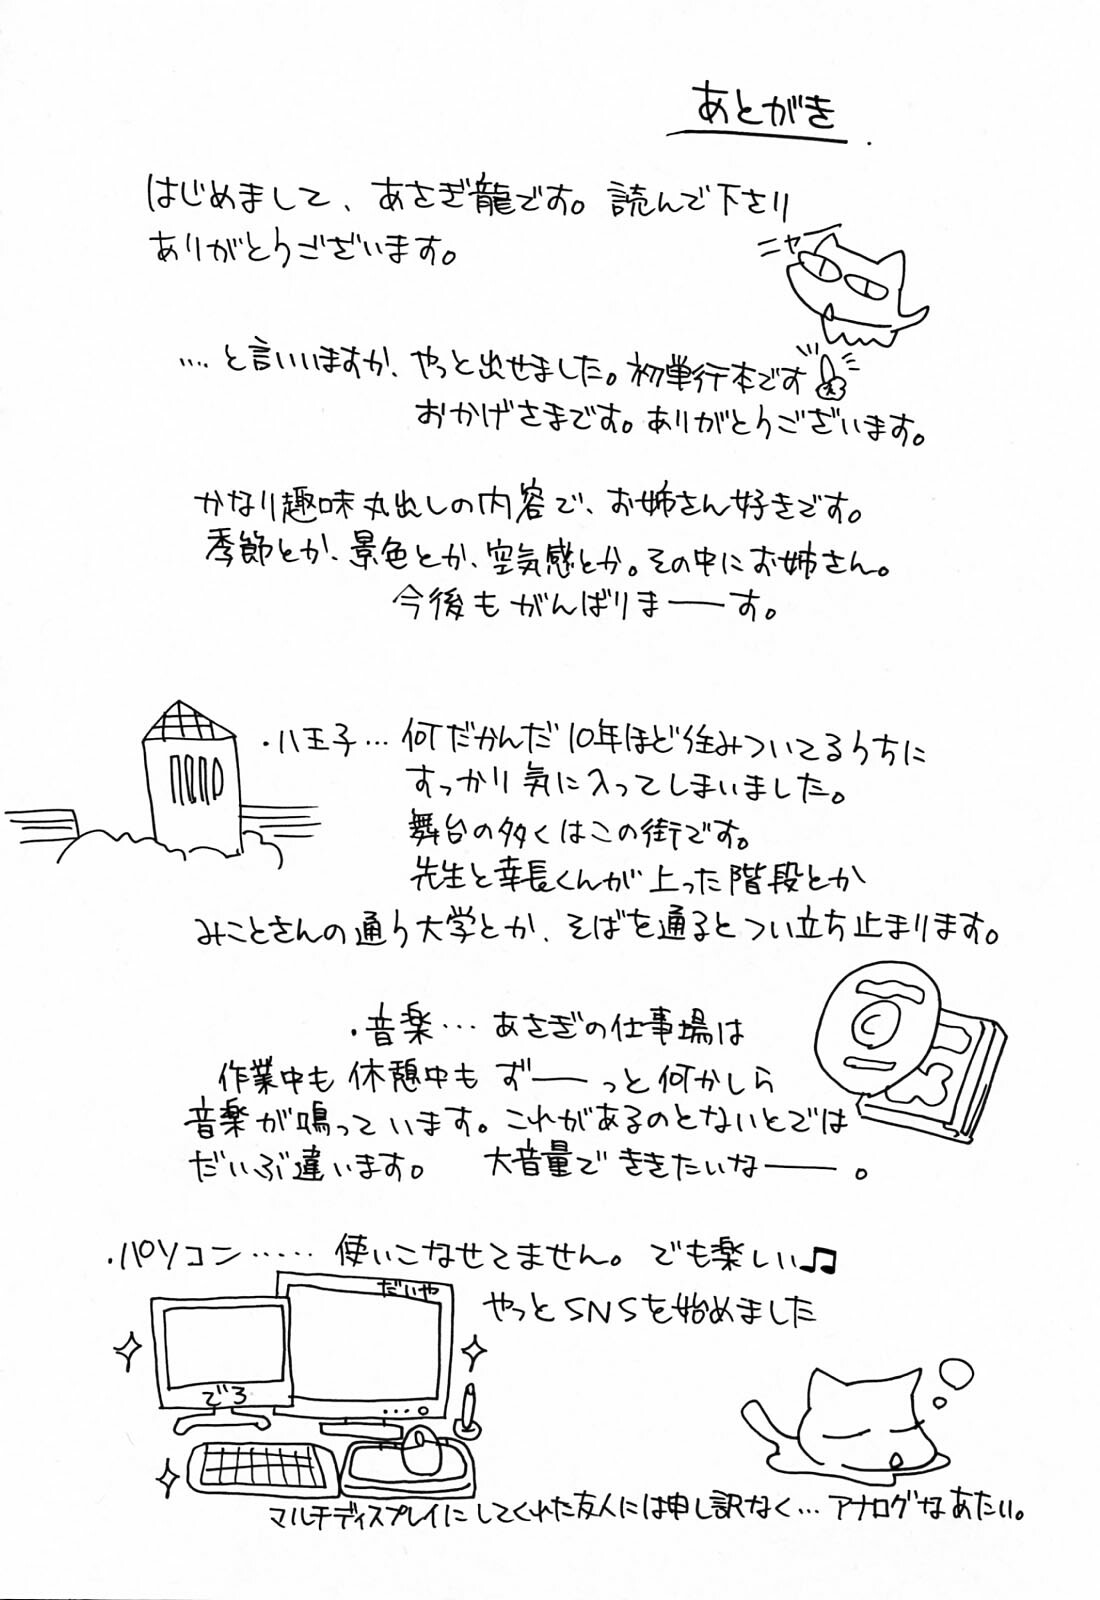 あとがき
はじめまして、あさぎ龍です。読んで下さり
ありがとうございます。
ニャー
…と言いいますか、やっと出せました。初単行本です
おかげさまです。ありがとうございます。
かなり趣味丸出しの内容で、お姉さん好きです。
季節とか、景色とか、空気感とか。その中にお姉さん。
今後もがんばりまーーす。
・八王子…何だかんだ10年ほど住みついてるうちに
すっかり気に入ってしまいました。
舞台の多くはこの街です。
先生と幸長くんが上った階段とか
みことさんの通う大学とか、そばを通るとつい立ち止まります。
・音楽…あさぎの仕事場は
作業中も休憩中もずーーっと何かしら
音楽が鳴っています。これがあるのとないとでは
だいぶ違います。 大音量でききたいなーー。
・パソコン……使いこなせてません。でも楽しい♫
やっとSNSを始めました
だいや
でろ
マルチディスプレイにしてくれた友人には申し訳なく…アナログなあたい。